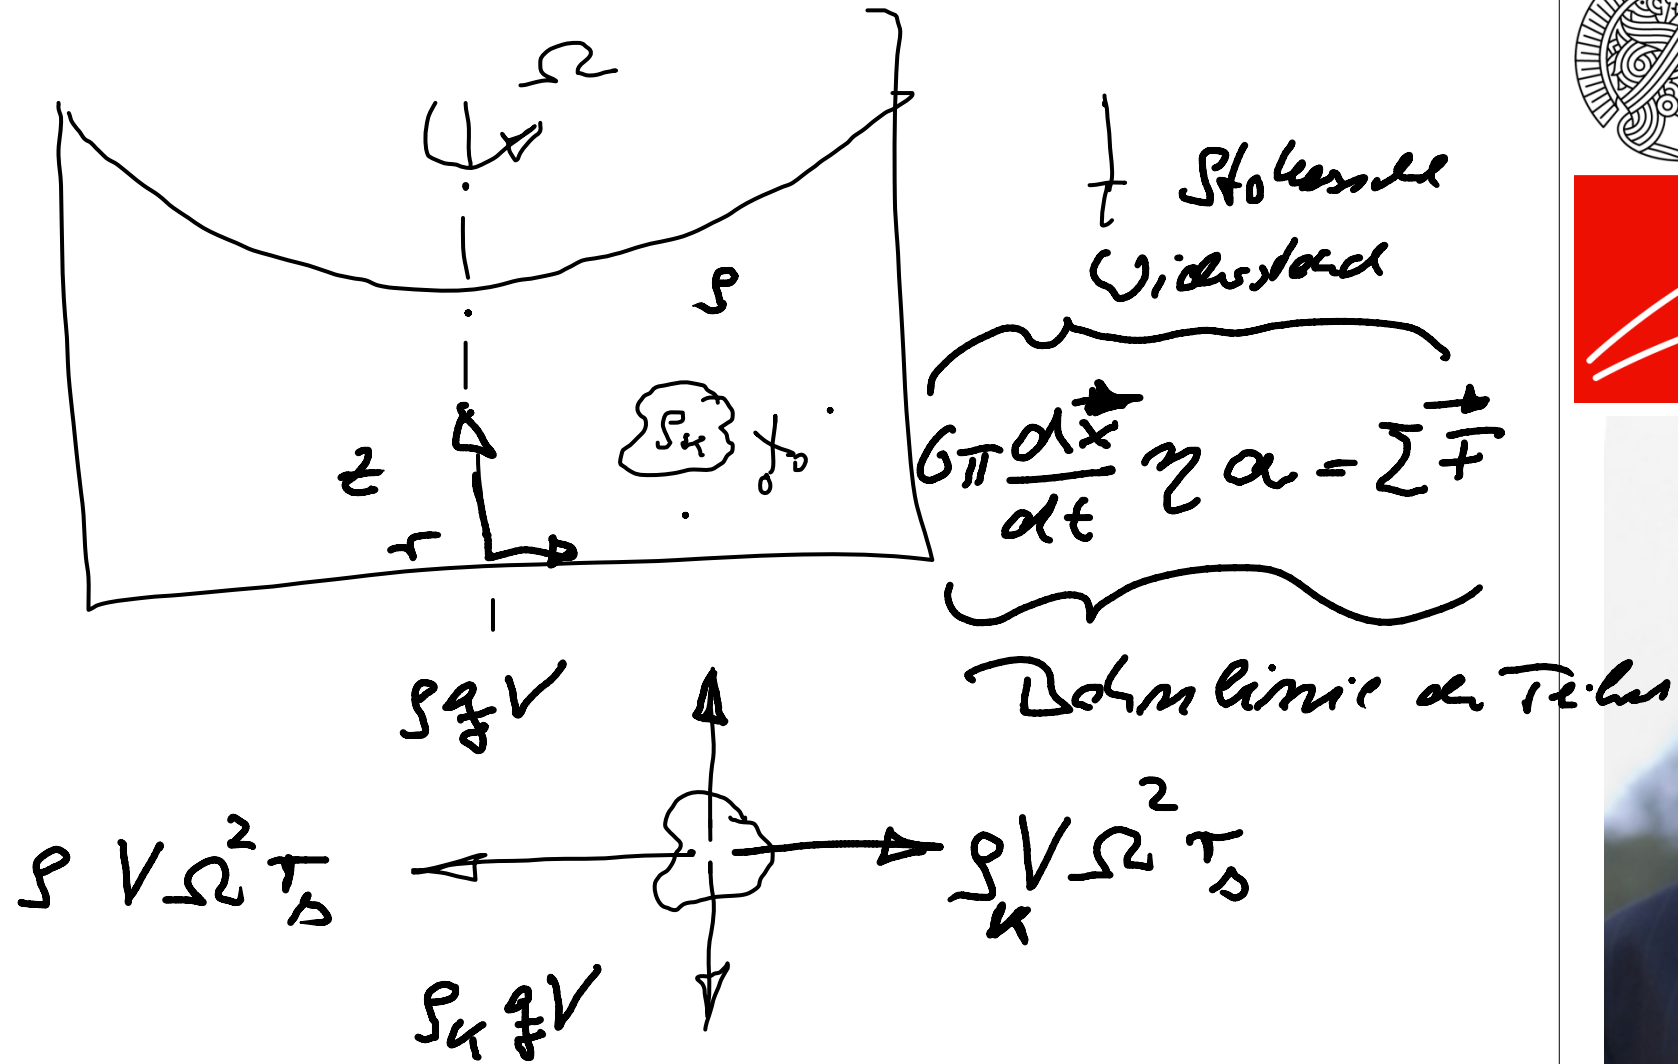 Ω
+ Stokessche
Widerstand
ρ
ρ_K
z
r
6π dx⃗/dt η a = Σ F⃗
Bahnlinie der Teilchen
ρ g V
ρ V Ω² r_s
ρ_K V Ω² r_s
ρ_K g V